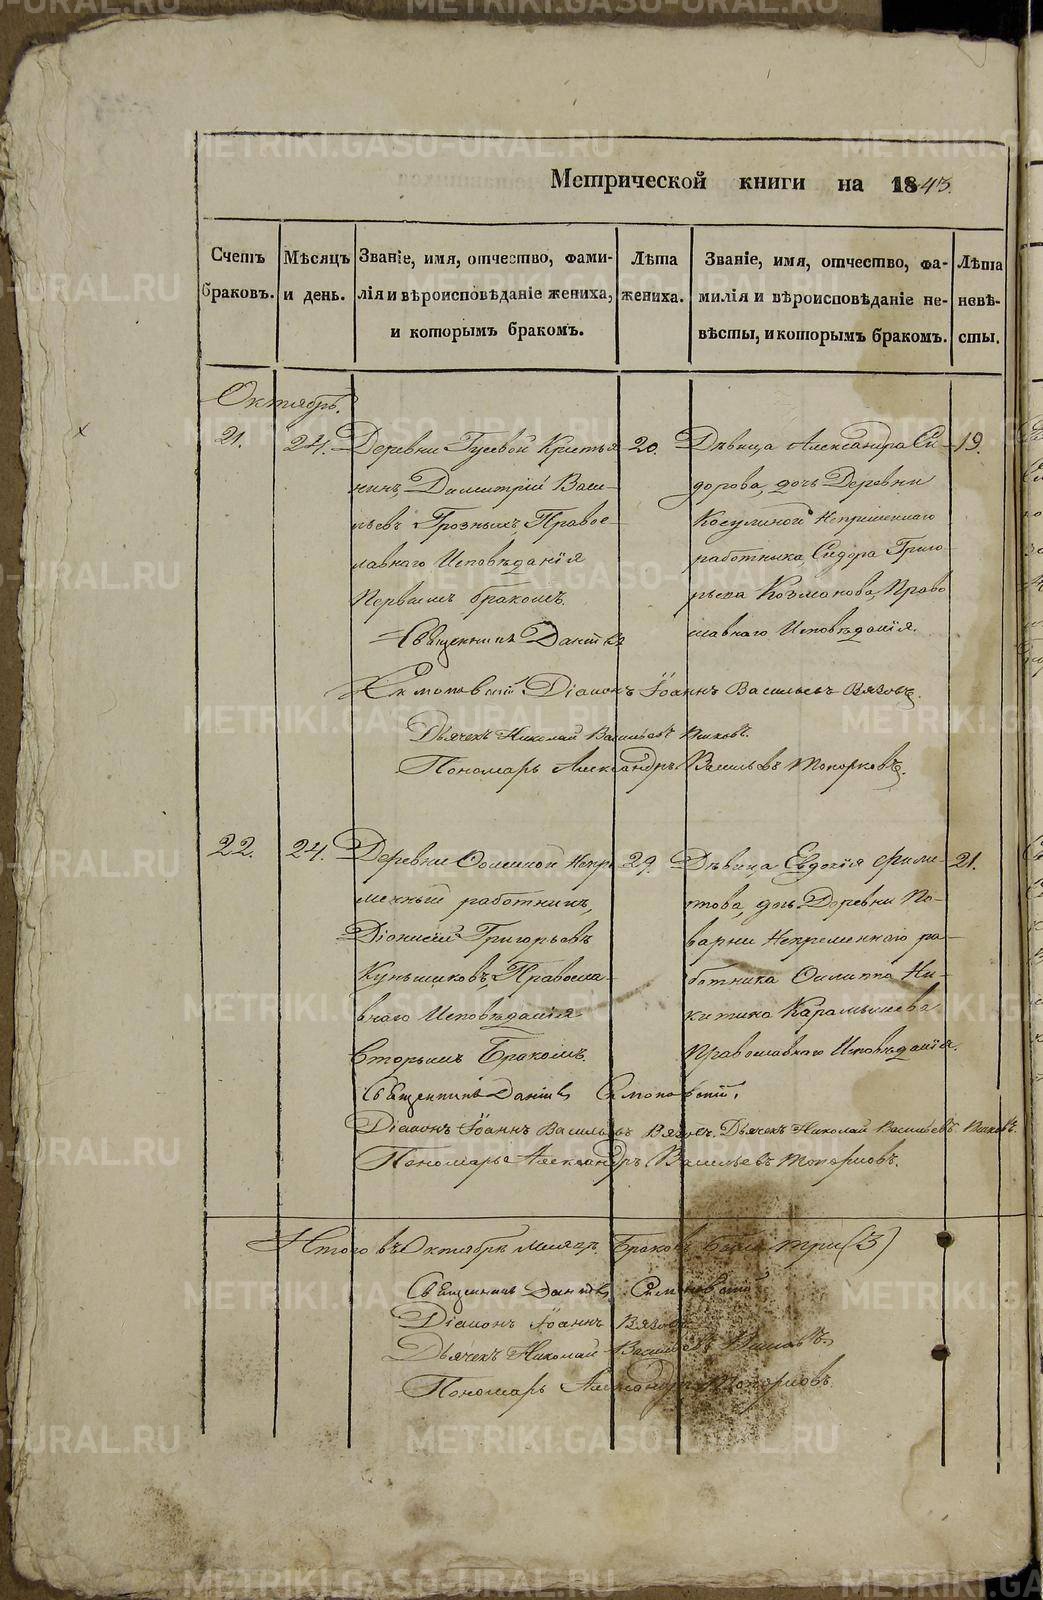 METRIKI.GASO-URAL.RU
Метрической книги на 1843.
Счетъ браковъ.
Мѣсяцъ и день.
Званіе, имя, отчество, фами-
лія и вѣроисповѣданіе жениха,
и которымъ бракомъ.
Лѣта жениха.
Званіе, имя, отчество, фа-
милія и вѣроисповѣданіе не-
вѣсты, и которымъ бракомъ.
Лѣта невѣ-
сты.
Октябрь.
21.
24.
Деревни Гусевой Крестья
нинъ, Димитрій Васи-
льевъ Грозныхъ, Право-
славнаго Исповѣданія
Первымъ бракомъ.
20.
Дѣвица Александра Си-
дорова, дочь Деревни
Косулиной Непременнаго
работника, Сидора Григо-
рьева Козманова, Право
славнаго Исповѣданія.
19.
Священникъ Даніилъ
Діаконъ Іоаннъ Васильевъ Вязовъ.
Дьячекъ Николай Васильевъ
Пономарь Александръ Васильевъ Топорковъ.
22.
24.
Деревни Непре
менный работникъ,
Діонисій Григорьевъ
Кунщиковъ, Правосла-
внаго Исповѣданія
Вторымъ Бракомъ.
29.
Дѣвица, Евдокія Фили-
пова, дочь Деревни По-
варни Непременнаго ра-
ботника Филиппа Ни-
китина Карамышева
Православнаго Исповѣданія.
21.
Священникъ Даніилъ
Діаконъ Іоаннъ Васильевъ Вязовъ. Дьячекъ Николай Васильевъ
Пономарь Александръ Васильевъ Топорковъ.
Итого въ Октябрѣ Месяце Браковъ было три (3)
Священникъ Даніилъ
Діаконъ Іоаннъ Вязовъ
Дьячекъ Николай Васильевъ
Пономарь Александръ Топорковъ.